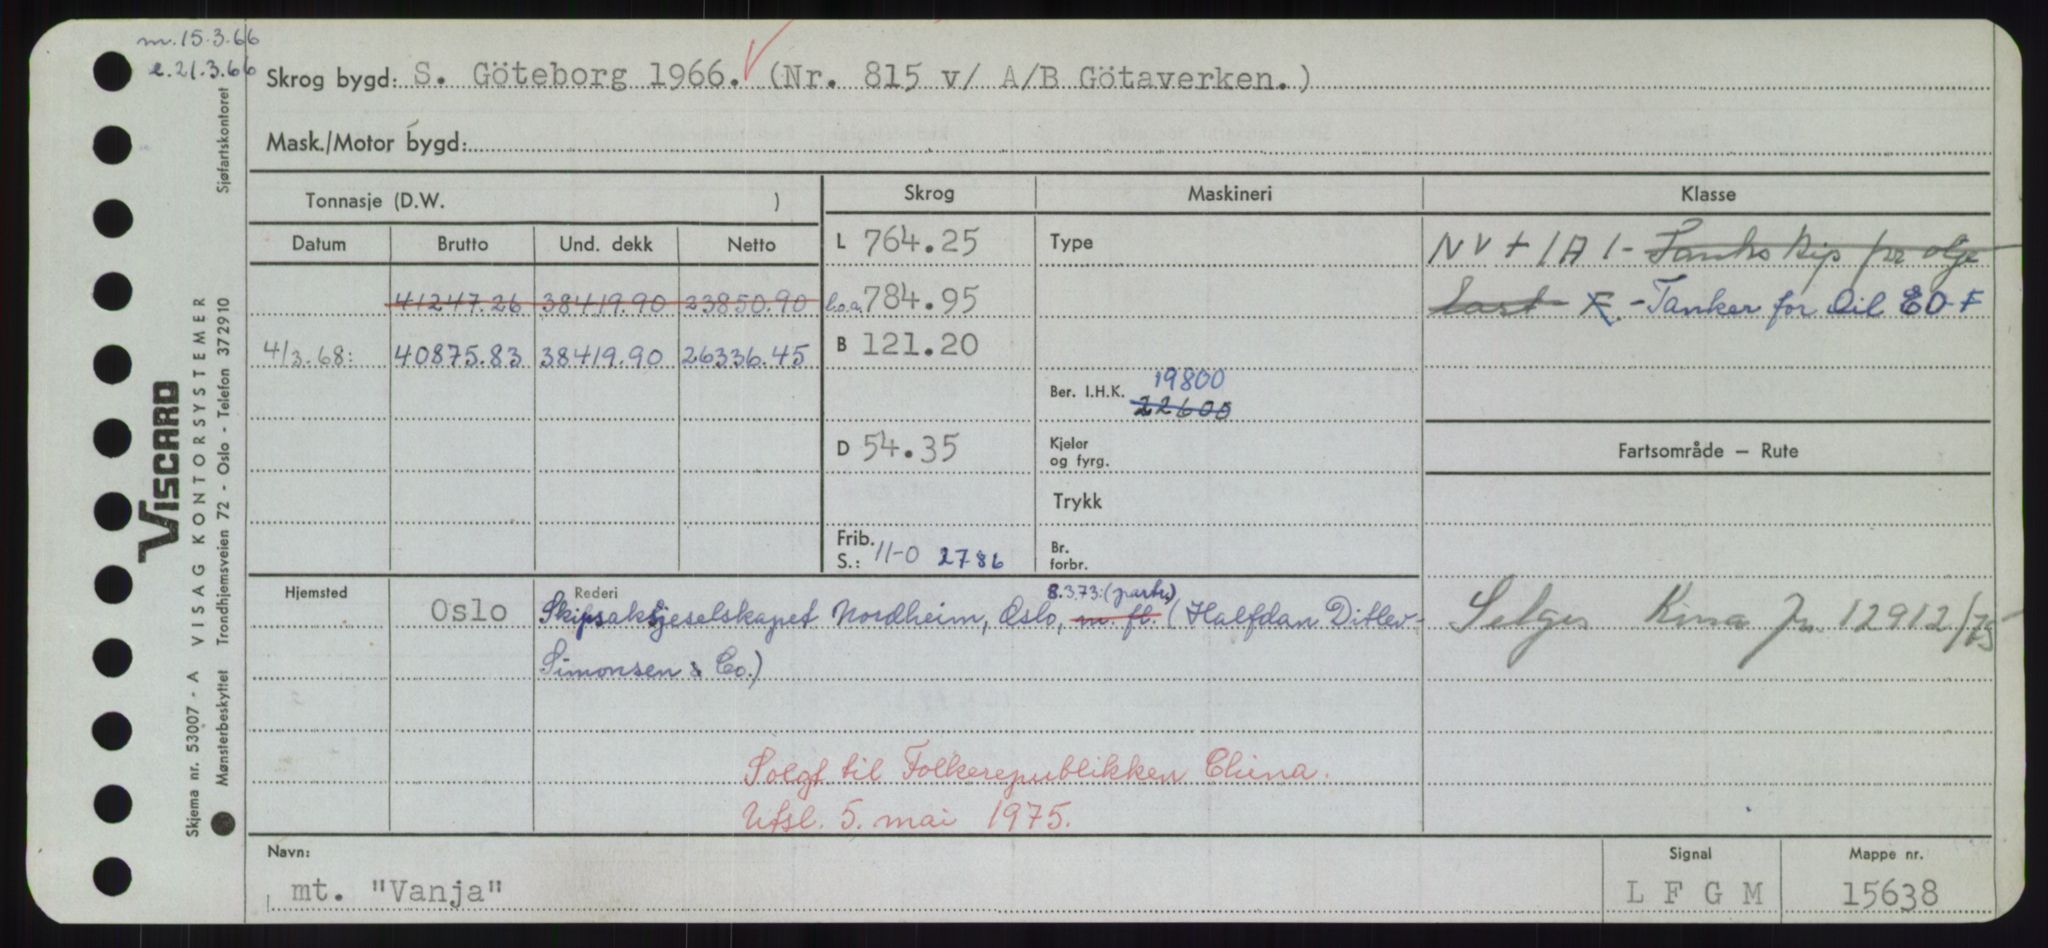 m. 15.3.66
e. 21.3.66
Skrog bygd: S. Göteborg 1966. (Nr. 815 v/ A/B Götaverken.)
Mask./Motor bygd:
Tonnasje (D.W. )
Skrog
Maskineri
Klasse
Datum
Brutto
Und. dekk
Netto
L 764.25
Type
NV + 1A1 - Tankskip for olje
41247.26 38419.90 23850.90
l.o.a. 784.95
last F. - Tanker for Oil EO F
4/3.68: 40875.83 38419.90 26336.45
B 121.20
Ber. I.H.K. 19800
22600
D 54.35
Kjeler
og fyrg.
Fartsområde – Rute
Trykk
Frib.
S.: 11-0 2786
Br.
forbr.
Hjemsted
Oslo
Rederi
8.3.73: (partr.)
Skipsaksjeselskapet Nordheim, Oslo, m. fl. (Halfdan Ditlev-
Simonsen & Co.)
Selges Kina 12912/75
Solgt til Folkerepublikken China.
Utsl. 5. mai 1975.
Navn:
mt. "Vanja"
Signal
L F G M
Mappe nr.
15638
VISCARD
VISAG KONTORSYSTEMER
Skjema nr. 53007 - A
Mønsterbeskyttet Trondhjemsveien 72 - Oslo - Telefon 372910
Sjøfartskontoret